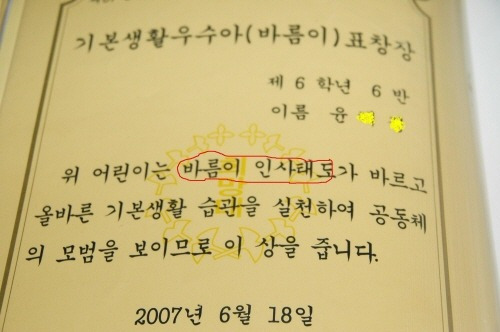 기본생활우수아(바름이)표창장
제 6 학년 6 반
이름 윤
위 어린이는 바름이 인사태도가 바르고
올바른 기본생활 습관을 실천하여 공동체
의 모범을 보이므로 이 상을 줍니다.
2007년 6월 18일